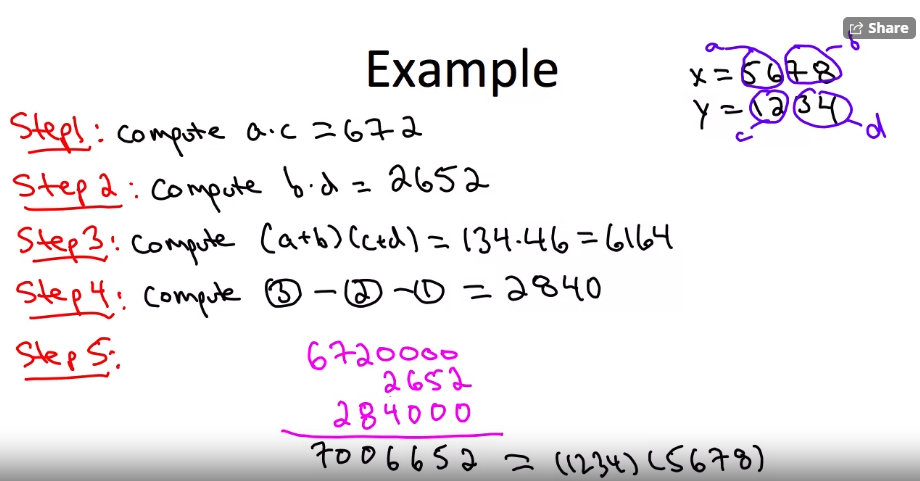 Share
Example
a b
x = 5678
y = 1234
c d
Step1: compute a·c = 672
Step 2: compute b·d = 2652
Step3: compute (a+b)(c+d) = 134·46 = 6164
Step 4: compute ③ - ② - ① = 2840
Step 5:
6720000
2652
284000
7006652 = (1234)(5678)